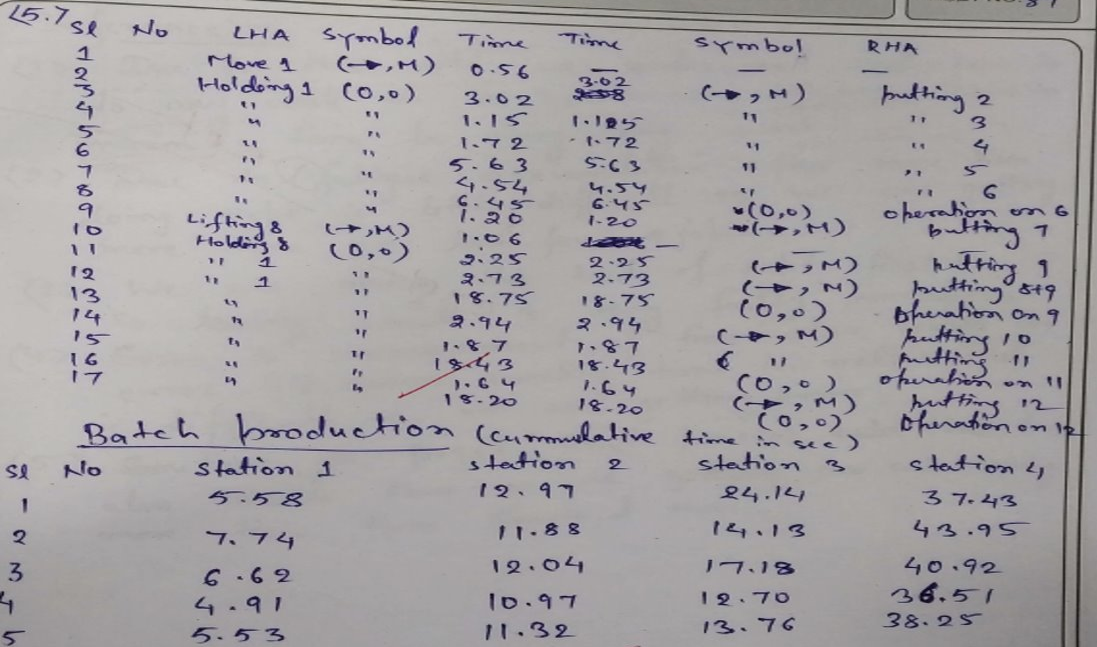 25.7
Sl No LHA Symbol Time Time Symbol RHA
1 Move 1 (→, M) 0.56 — — —
2 Holding 1 (0,0) 3.02 3.02 (→, M) putting 2
3 " " 1.15 1.15 " " 3
4 " " 1.72 1.72 " " 4
5 " " 5.63 5.63 " " 5
6 " " 4.54 4.54 " " 6
7 " " 6.45 6.45 (0,0) operation on 6
8 " " 1.20 1.20 (→, M) putting 7
9 Lifting 8 (→, M) 1.06 — — —
10 Holding 8 (0,0) 2.25 2.25 (→, M) putting 9
11 " 1 " 2.73 2.73 (→, M) putting 8+9
12 " 1 " 18.75 18.75 (0,0) Operation on 9
13 " " 2.94 2.94 (→, M) putting 10
14 " " 1.87 1.87 " putting 11
15 " " 18.43 18.43 (0,0) operation on 11
16 " " 1.64 1.64 (→, M) putting 12
17 " " 18.20 18.20 (0,0) Operation on 12
Batch production (cummulative time in sec)
Sl No Station 1 Station 2 Station 3 Station 4
1 5.58 12.97 24.14 37.43
2 7.74 11.88 14.13 43.95
3 6.62 12.04 17.18 40.92
4 4.91 10.97 12.70 36.51
5 5.53 11.32 13.76 38.25